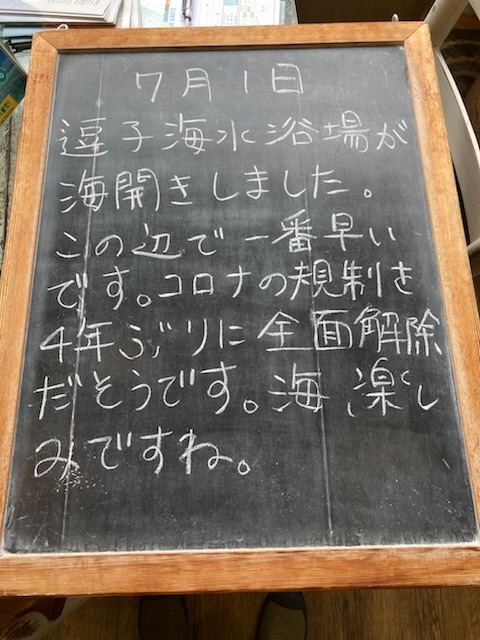 7月1日
逗子海水浴場が
海開きしました。
この辺で一番早い
です。コロナの規制を
4年ぶりに全面解除
だそうです。海、楽し
みですね。